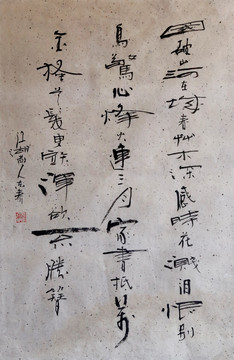 国破山河在城春草木深感時花濺泪恨别
鳥驚心烽火連三月家書抵萬
金搔髮更短渾欲不勝簪
江湖人